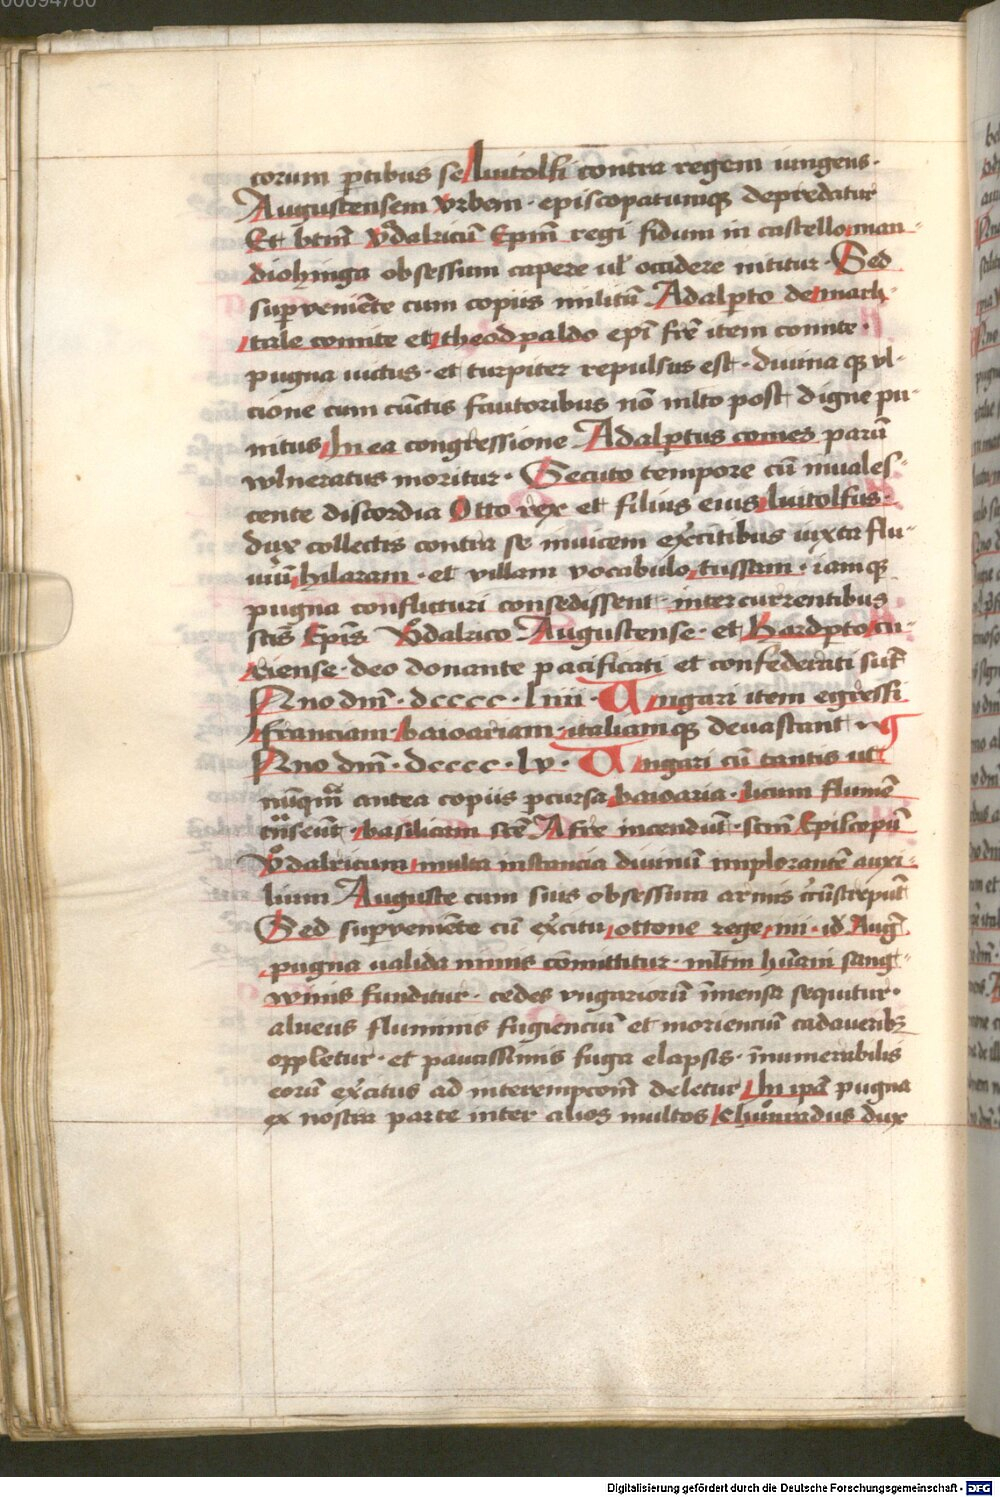 00094780
corum ꝑtibus se luitolfi contra regem iungens·
Augustensem vrbem· episcopatumqꝫ depredatur
Et btm̄ vͦdalricū Epm̄ regi fidum in castello man-
diohinga obsessum capere uł occidere nititur· Sed
suꝑveniēte cum copiis militū Adalꝑto de march-
tale comite et theodpaldo epi̅ fr̄e item comite·
pugna uictus· et turpiter repulsus est· diuina qꝫ vl-
cione cum cūctis fautoribus nō mlto post digne pu-
nitus In ea congressione Adalꝑtus comes parū
wlneratus moritur· Secuto tempore cū inuales-
cente discordia Otto rex et filius eius luitolfus·
dux collectis contra se inuicem ex̄citibus iuxta flu-
uiū hilaram· et villam vocabulo tussam· iamqꝫ
pugna conflicturi consedissent intercurrentibus
sc̄is Ep̄is vͦdalrico Augustense· et Hardꝑto cu-
riense· deo donante pacificati et confederati sūt
Anno dm̄· dcccc· liiii· Ungari item egressi
franciam baioariam· italiamqꝫ deuastant
Anno dm̄· dcccc· lv· Ungari cū tantis ut
nūqm̄ antea copiis ꝑcursa baioaria· licum flumē
tn̄seūt· basilicam sc̄e Afre incendūt· sc̄m Episcopū
vͦdalricum multa instancia diuinū implorantē auxi-
lium Auguste cum suis obsessum armis cir̄ūstreput̄
Sed suꝑveniēte cū ex̄citu ottone rege· iiii· id̄ Auḡ
pugna ualida nimis cōmittitur· mltm̄ hūani sang-
winis funditur· cedes vngariorū īmensa sequitur·
alueus fluminis fugienciū et morienciū cadaueribꝫ
oppletur· et paucissimis fuga elapsis· īnumerabilis
eorū ex̄citus ad interempcom̄ deletur In ipa̅ pugna
ex nostra parte inter alios multos chuͦnradus dux
Digitalisierung gefördert durch die Deutsche Forschungsgemeinschaft - DFG